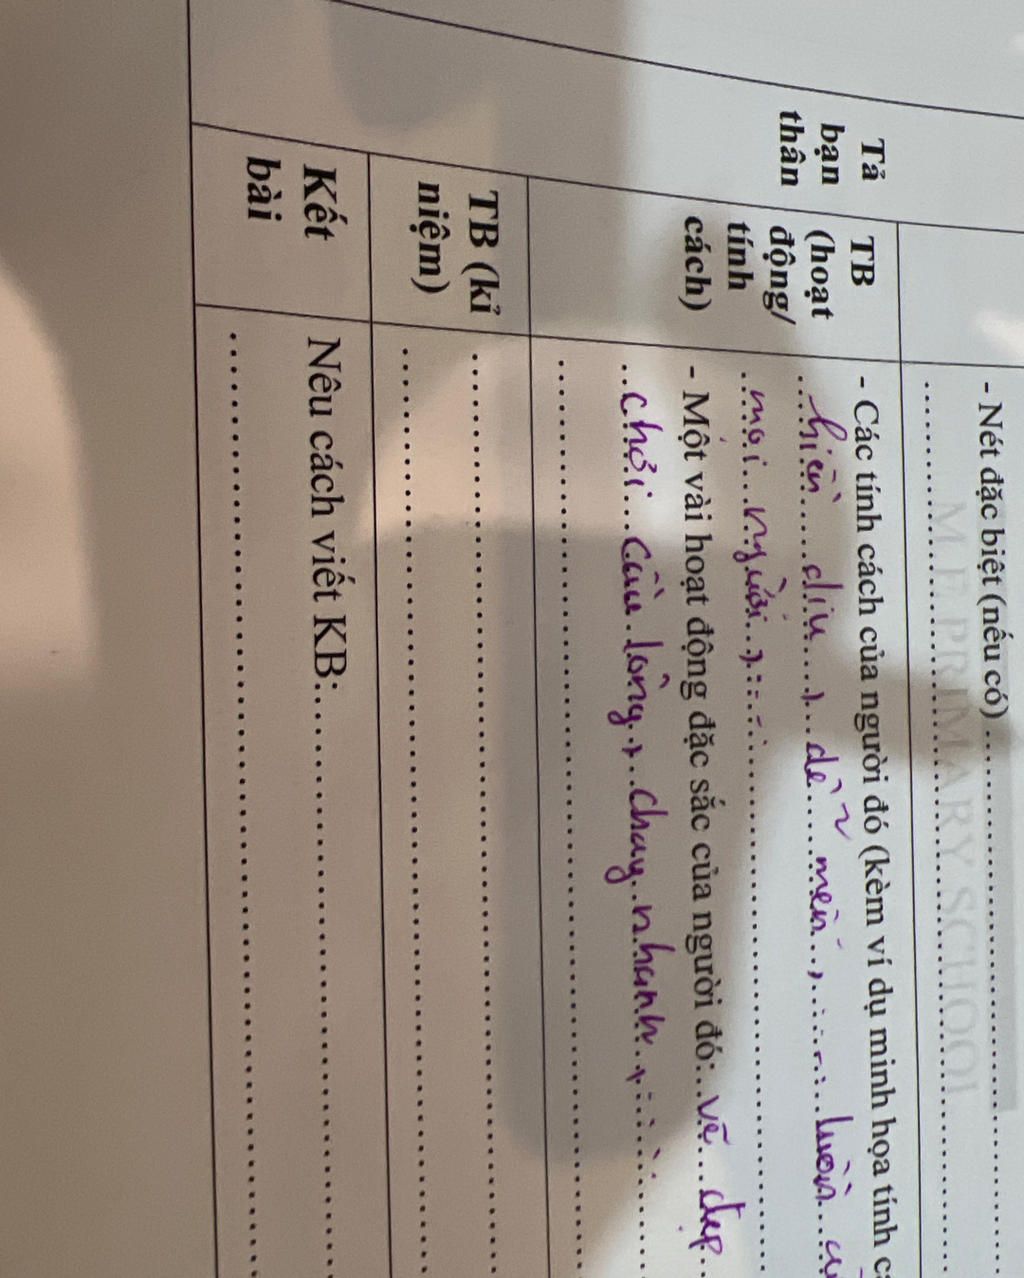 - Nét đặc biệt (nếu có)..............
M.F PRIMARY SCHOOL
Tả bạn thân
TB (hoạt động/ tính cách)
- Các tính cách của người đó (kèm ví dụ minh họa tính
hiền dịu, dễ mến, ... luôn
mọi người, ...
- Một vài hoạt động đặc sắc của người đó: vẽ đẹp
chơi cầu lông, chạy nhanh, ...
TB (kỉ niệm)
Kết bài
Nêu cách viết KB:..............